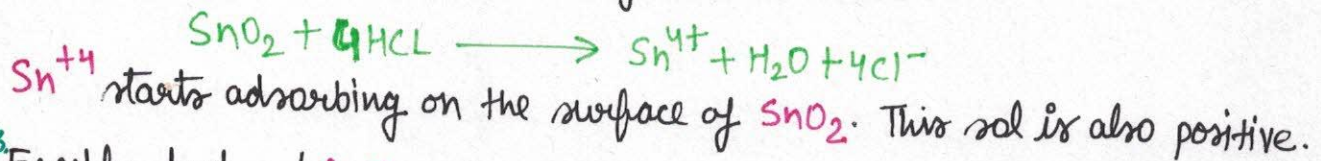 SnO₂ + 4HCL ⟶ Sn⁴⁺ + H₂O + 4Cl⁻
Sn⁺⁴ starts adsorbing on the surface of SnO₂. This sol is also positive.